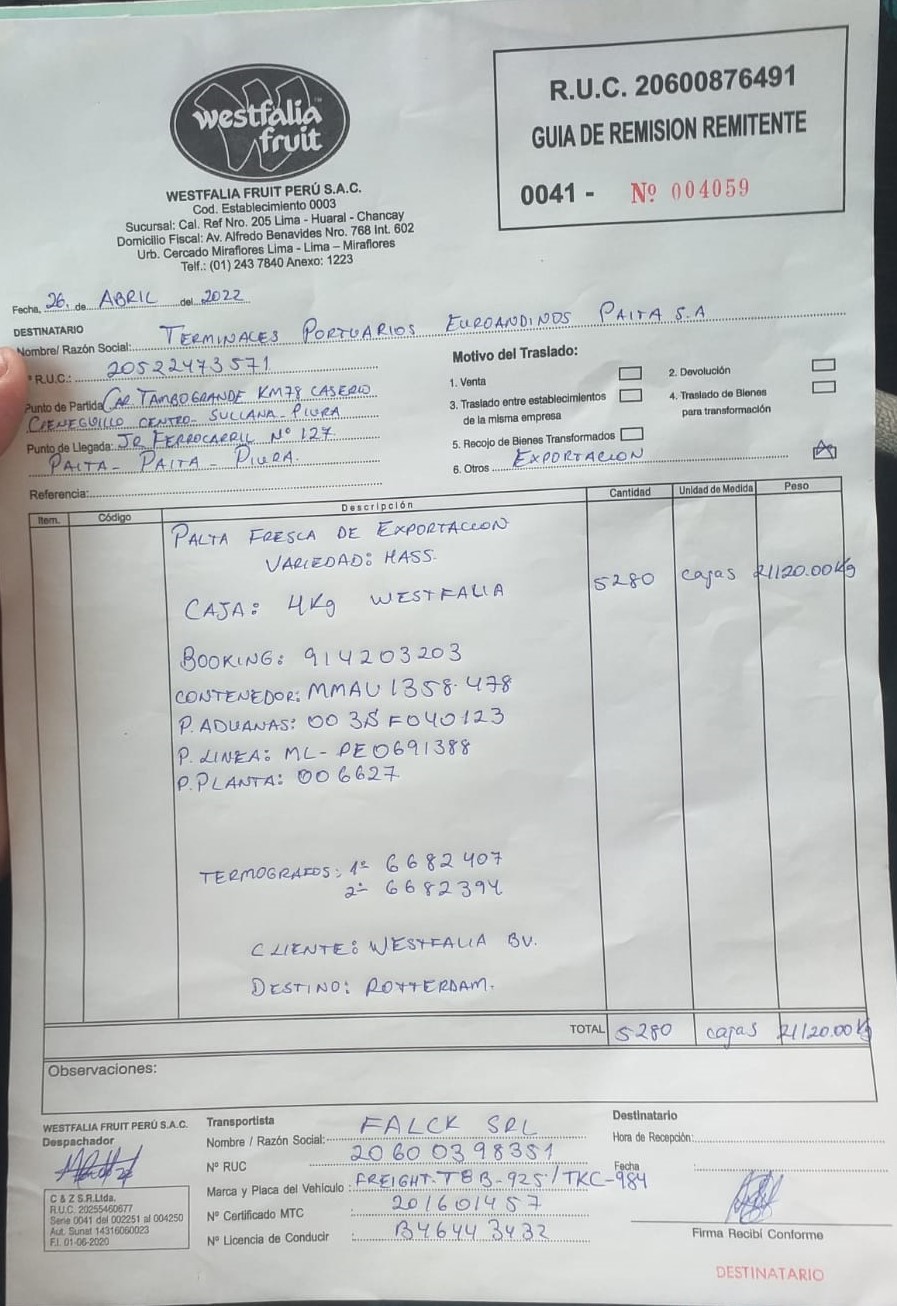 westfalia
fruit
WESTFALIA FRUIT PERÚ S.A.C.
Cod. Establecimiento 0003
Sucursal: Cal. Ref Nro. 205 Lima - Huaral - Chancay
Domicilio Fiscal: Av. Alfredo Benavides Nro. 768 Int. 602
Urb. Cercado Miraflores Lima - Lima – Miraflores
Telf.: (01) 243 7840 Anexo: 1223
R.U.C. 20600876491
GUIA DE REMISION REMITENTE
0041 - Nº 004059
Fecha, 26. de ABRIL del 2022
DESTINATARIO
Nombre/ Razón Social: TERMINALES PORTUARIOS EUROANDINOS PAITA S.A
º R.U.C.: 20522473571
Punto de Partida: CAR TAMBOGRANDE KM78 CASERIO
CIENEGUILLO CENTRO - SULLANA - PIURA
Punto de Llegada: JR FERROCARRIL Nº 127
PAITA - PAITA - PIURA.
Referencia:
Motivo del Traslado:
1. Venta
2. Devolución
3. Traslado entre establecimientos
de la misma empresa
4. Traslado de Bienes
para transformación
5. Recojo de Bienes Transformados
6. Otros EXPORTACION
Item. Código Descripción Cantidad Unidad de Medida Peso
PALTA FRESCA DE EXPORTACCION
VARIEDAD: HASS.
CAJA: 4Kg WESTFALIA 5280 cajas 21120.00Kg
BOOKING: 914203203
CONTENEDOR: MMAU 1358478
P. ADUANAS: 00 3S F040123
P. LINEA: ML-PE0691388
P. PLANTA: 006627
TERMOGRAFOS: 1º 6682407
2º 6682394
CLIENTE: WESTFALIA BV.
DESTINO: ROTTERDAM.
TOTAL 5280 cajas 21120.00Kg
Observaciones:
WESTFALIA FRUIT PERÚ S.A.C.
Despachador
C & Z S.R.Ltda.
R.U.C. 20255460677
Serie 0041 del 002251 al 004250
Aut. Sunat 14316060023
F.I. 01-06-2020
Transportista
Nombre / Razón Social: FALCK SRL
Nº RUC 20600398351
Marca y Placa del Vehículo: FREIGHT. T8B-925/TKC-984
Nº Certificado MTC : 201601457
Nº Licencia de Conducir : B46443432
Destinatario
Hora de Recepción:
Fecha :
Firma Recibí Conforme
DESTINATARIO